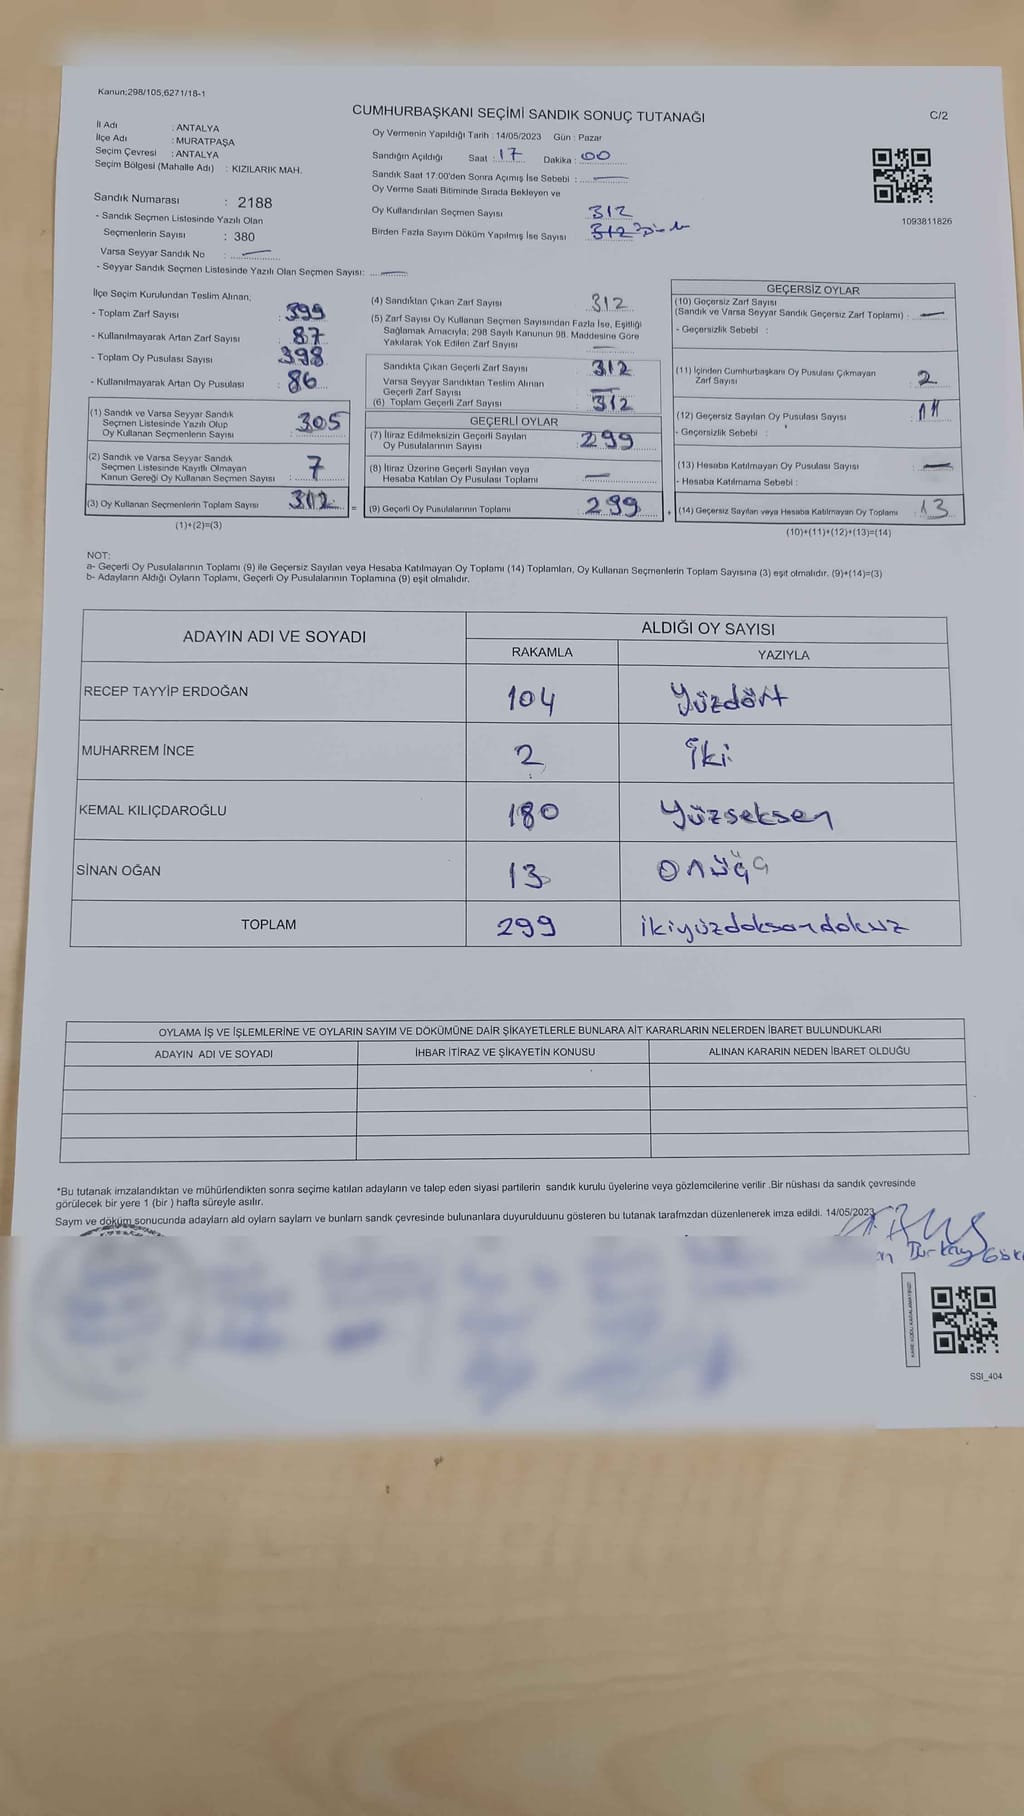 Kanun:298/105,6271/18-1
CUMHURBAŞKANI SEÇİMİ SANDIK SONUÇ TUTANAĞI
C/2
İl Adı : ANTALYA
İlçe Adı : MURATPAŞA
Seçim Çevresi : ANTALYA
Seçim Bölgesi (Mahalle Adı) : KIZILARIK MAH.
Sandık Numarası : 2188
- Sandık Seçmen Listesinde Yazılı Olan
Seçmenlerin Sayısı : 380
Varsa Seyyar Sandık No :
- Seyyar Sandık Seçmen Listesinde Yazılı Olan Seçmen Sayısı:
Oy Vermenin Yapıldığı Tarih : 14/05/2023 Gün : Pazar
Sandığın Açıldığı Saat : 17 Dakika : 00
Sandık Saat 17:00'den Sonra Açımış İse Sebebi :
Oy Verme Saati Bitiminde Sırada Bekleyen ve
Oy Kullandırılan Seçmen Sayısı 312
Birden Fazla Sayım Döküm Yapılmış İse Sayısı 312
1093811826
İlçe Seçim Kurulundan Teslim Alınan;
- Toplam Zarf Sayısı : 399
- Kullanılmayarak Artan Zarf Sayısı : 87
- Toplam Oy Pusulası Sayısı : 398
- Kullanılmayarak Artan Oy Pusulası : 86
(1) Sandık ve Varsa Seyyar Sandık
Seçmen Listesinde Yazılı Olup
Oy Kullanan Seçmenlerin Sayısı : 305
(2) Sandık ve Varsa Seyyar Sandık
Seçmen Listesinde Kayıtlı Olmayan
Kanun Gereği Oy Kullanan Seçmen Sayısı : 7
(3) Oy Kullanan Seçmenlerin Toplam Sayısı 312 =
(1)+(2)=(3)
(4) Sandıktan Çıkan Zarf Sayısı 312
(5) Zarf Sayısı Oy Kullanan Seçmen Sayısından Fazla İse, Eşitliği
Sağlamak Amacıyla; 298 Sayılı Kanunun 98. Maddesine Göre
Yakılarak Yok Edilen Zarf Sayısı
Sandıkta Çıkan Geçerli Zarf Sayısı 312
Varsa Seyyar Sandıktan Teslim Alınan
Geçerli Zarf Sayısı
(6) Toplam Geçerli Zarf Sayısı 312
GEÇERLİ OYLAR
(7) İtiraz Edilmeksizin Geçerli Sayılan
Oy Pusulalarının Sayısı : 299
(8) İtiraz Üzerine Geçerli Sayılan veya
Hesaba Katılan Oy Pusulası Toplamı
(9) Geçerli Oy Pusulalarının Toplamı 299 +
GEÇERSİZ OYLAR
(10) Geçersiz Zarf Sayısı
(Sandık ve Varsa Seyyar Sandık Geçersiz Zarf Toplamı) :
- Geçersizlik Sebebi :
(11) İçinden Cumhurbaşkanı Oy Pusulası Çıkmayan
Zarf Sayısı 2
(12) Geçersiz Sayılan Oy Pusulası Sayısı 11
- Geçersizlik Sebebi :
(13) Hesaba Katılmayan Oy Pusulası Sayısı
- Hesaba Katılmama Sebebi :
(14) Geçersiz Sayılan veya Hesaba Katılmayan Oy Toplamı : 13
(10)+(11)+(12)+(13)=(14)
NOT:
a- Geçerli Oy Pusulalarının Toplamı (9) ile Geçersiz Sayılan veya Hesaba Katılmayan Oy Toplamı (14) Toplamları, Oy Kullanan Seçmenlerin Toplam Sayısına (3) eşit olmalıdır. (9)+(14)=(3)
b- Adayların Aldığı Oyların Toplamı, Geçerli Oy Pusulalarının Toplamına (9) eşit olmalıdır.
ADAYIN ADI VE SOYADI
ALDIĞI OY SAYISI
RAKAMLA YAZIYLA
RECEP TAYYİP ERDOĞAN 104 Yüzdört
MUHARREM İNCE 2 İki
KEMAL KILIÇDAROĞLU 180 Yüzseksen
SİNAN OĞAN 13 Onüç
TOPLAM 299 ikiyüzdoksandokuz
OYLAMA İŞ VE İŞLEMLERİNE VE OYLARIN SAYIM VE DÖKÜMÜNE DAİR ŞİKAYETLERLE BUNLARA AİT KARARLARIN NELERDEN İBARET BULUNDUKLARI
ADAYIN ADI VE SOYADI İHBAR İTİRAZ VE ŞİKAYETİN KONUSU ALINAN KARARIN NEDEN İBARET OLDUĞU
*Bu tutanak imzalandıktan ve mühürlendikten sonra seçime katılan adayların ve talep eden siyasi partilerin sandık kurulu üyelerine veya gözlemcilerine verilir .Bir nüshası da sandık çevresinde
görülecek bir yere 1 (bir ) hafta süreyle asılır.
Saym ve döküm sonucunda adaylarn ald oylarn saylarn ve bunlarn sandk çevresinde bulunanlara duyurulduunu gösteren bu tutanak tarafmzdan düzenlenerek imza edildi. 14/05/2023
SSI_404